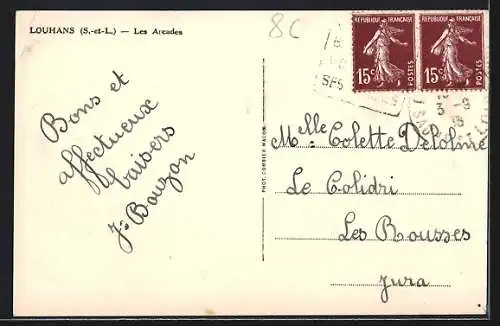 LOUHANS (S.-et-L.) — Les Arcades
8C
REPUBLIQUE FRANÇAISE REPUBLIQUE FRANÇAISE
15c POSTES 15c POSTES
SES
3 -8
38
Bons et
affectueux
baisers
J. Bouzon
PHOT. COMBIER MACON
Melle Colette Delolme
Le Colidri
Les Rousses
Jura